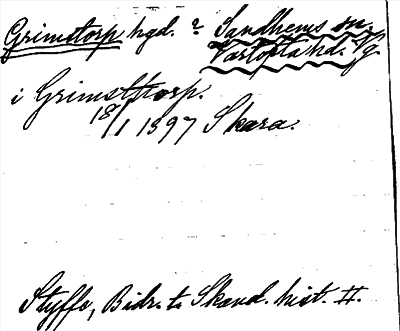 Grimstorp hgd. ? Sandhems sn.
Vartofta hd. Vg.
i Grimsttorp.
18/1 1397 Skara.
Styffe, Bidr. t. Skand. hist. II.